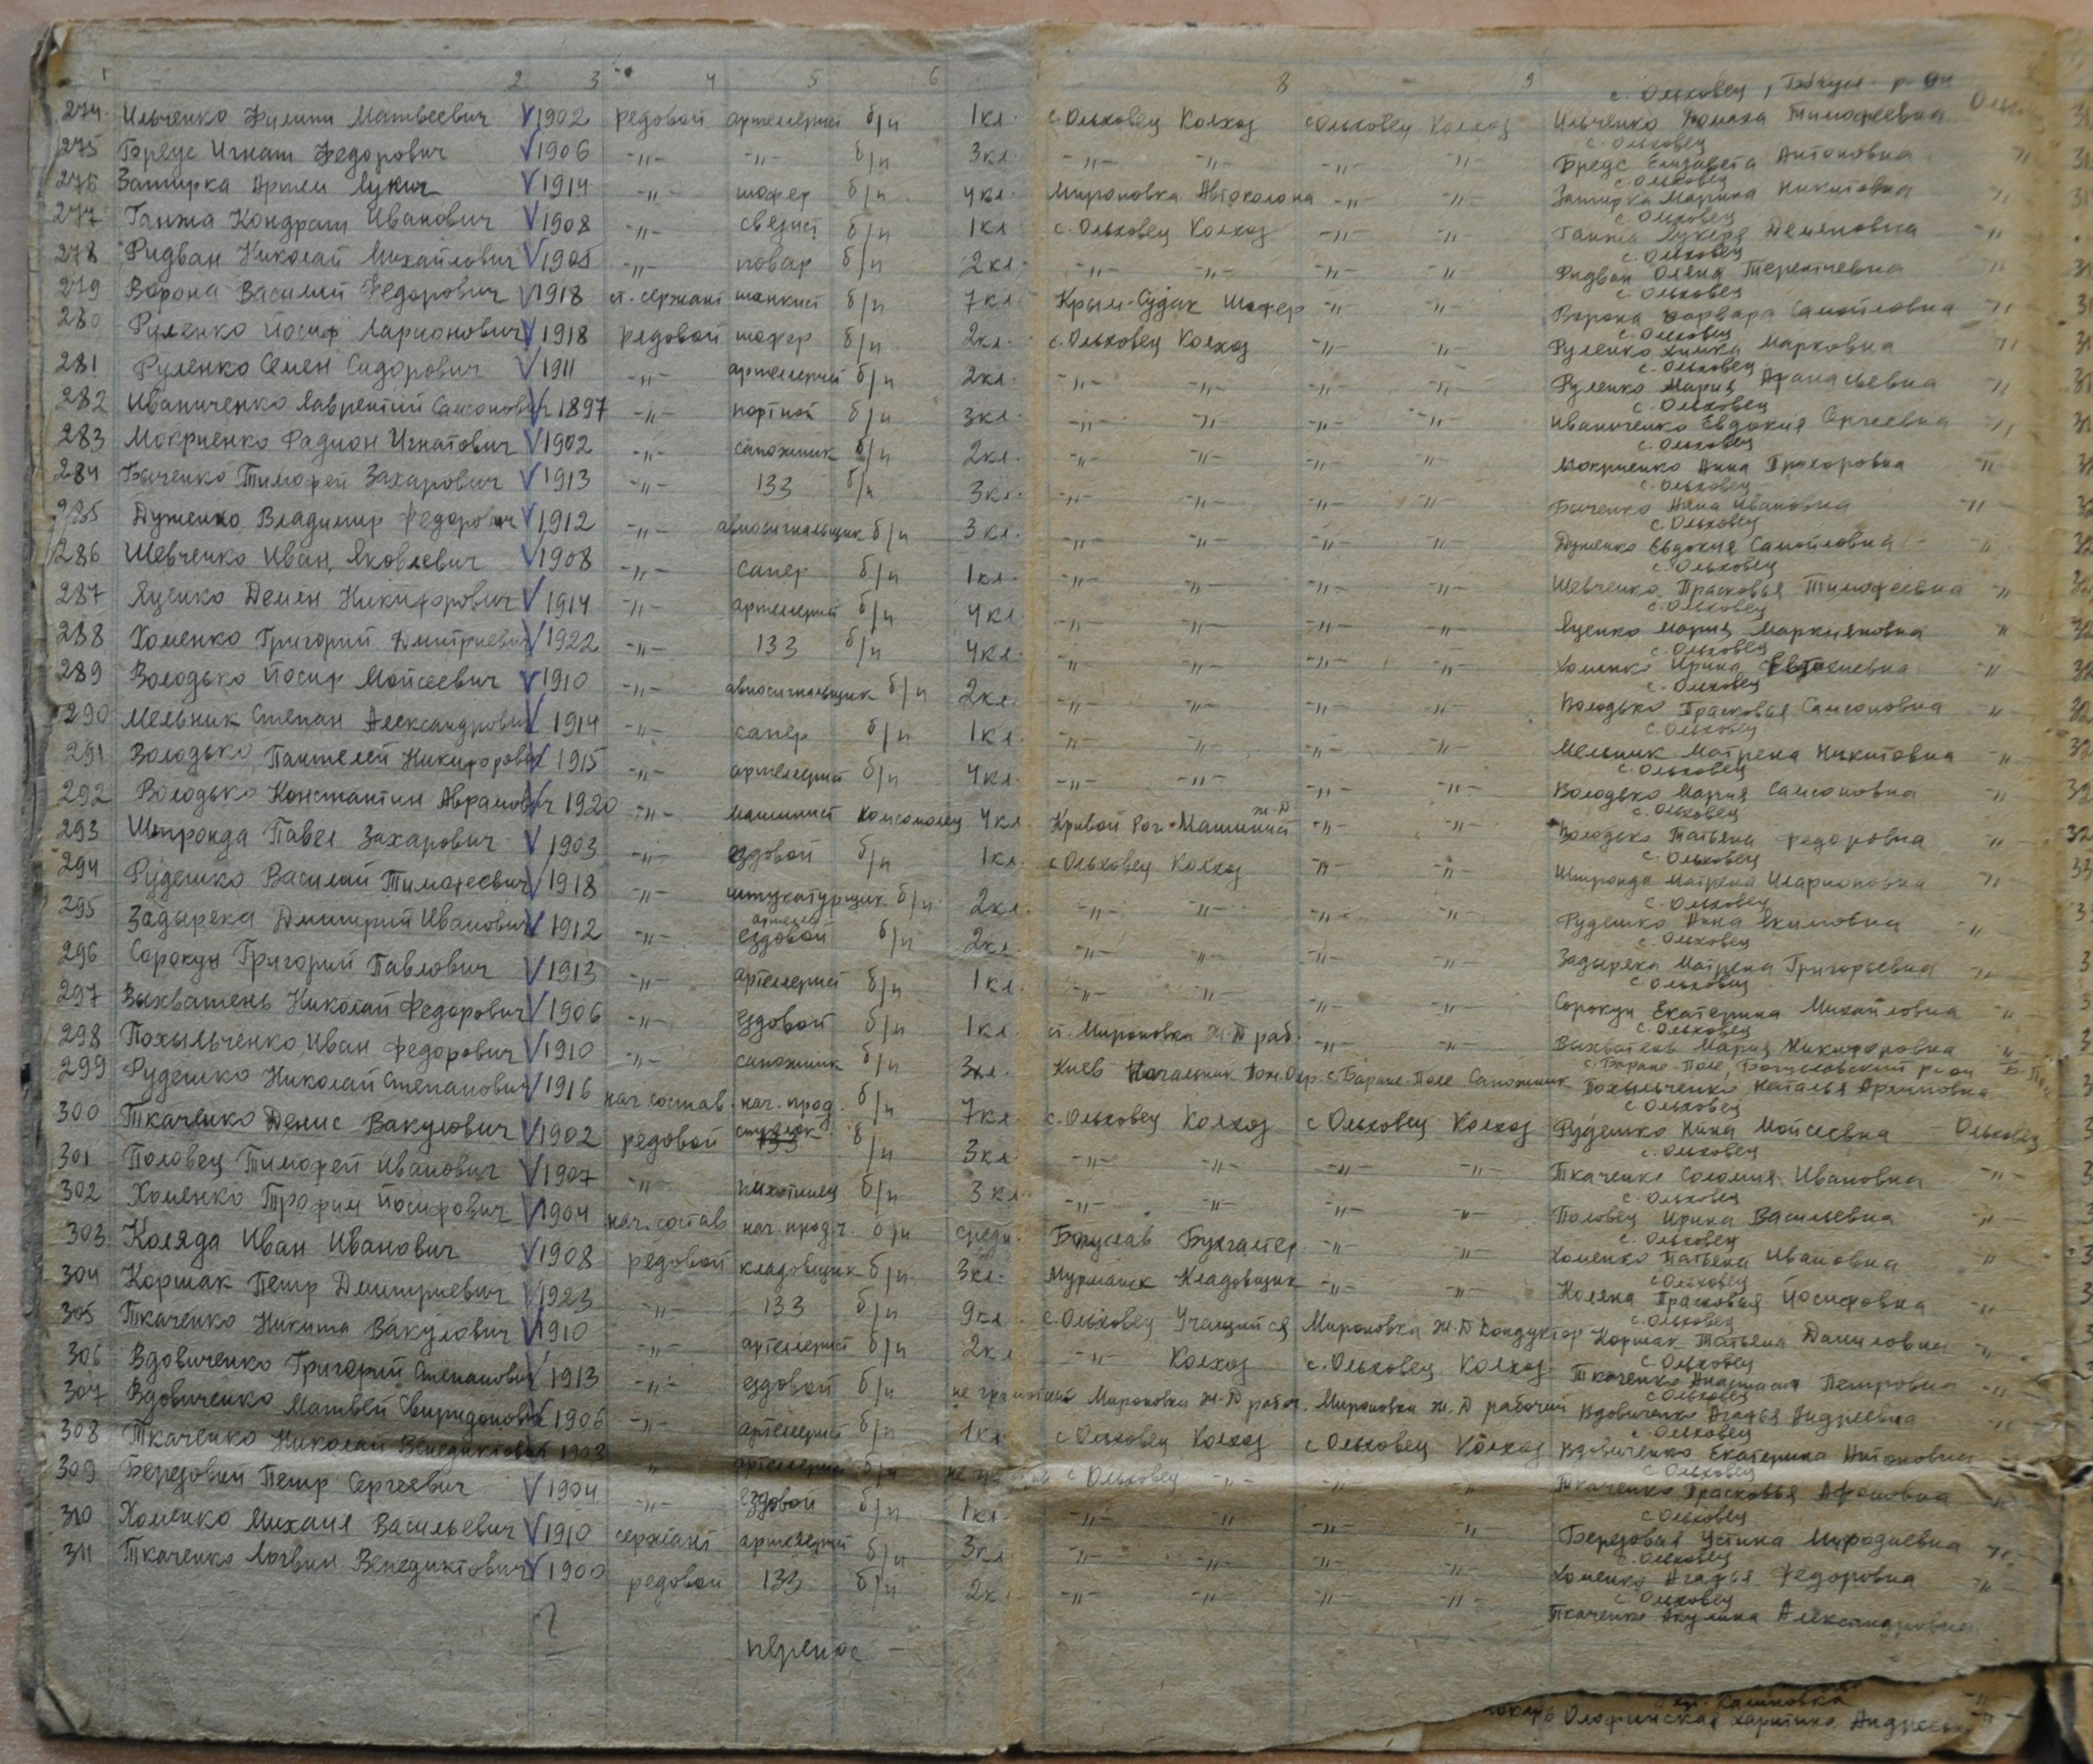 1 2 3 4 5 6 8 9
с. Ольховец, р-он
274 Ильченко Филипп Матвеевич V 1902 редовой артелерист б/п 1кл. с. Ольховец Колхоз с Ольховец Колхоз Ильченко Домаха Тимофеевна
с. Ольховец
275 Игнат Федорович V 1906 -"- -"- б/п 3кл. -"- -"- -"- -"- Елизавета Антоновна -"-
с. Ольховец
276 Затирка Артем Лукич V 1914 -"- шофер б/п 4кл. Мироновка Автоколона -"- -"- Затирка Марина Никитовна -"-
с. Ольховец
277 Ганжа Кондрат Иванович V 1908 -"- связист б/п 1кл с. Ольховец Колхоз -"- -"- Ганжа Лукеря Демяновна -"-
с. Ольховец
278 Ридван Николай Михайлович V 1905 -"- повар б/п 2кл. -"- -"- -"- -"- Ридван Олена Терентьевна -"-
с. Ольховец
279 Ворона Василий Федорович V 1918 ст. сержант танкист б/п 7кл. Крым-Судак Шофер -"- -"- Ворона Варвара Самойловна -"-
с. Ольховец
280 Руленко Йосиф Ларионович V 1918 рядовой шофер б/п 2кл. с. Ольховец Колхоз -"- -"- Руленко Химка Марковна -"-
с. Ольховец
281 Руленко Семен Сидорович V 1911 -"- артелерист б/п 2кл. -"- -"- -"- -"- Руленко Мария Афанасьевна -"-
с. Ольховец
282 Иваниченко Лаврентий Самсонович V 1897 -"- портной б/п 3кл -"- -"- -"- -"- Иваниченко Евдокия Сергеевна -"-
с. Ольховец
283 Мокриенко Фадион Игнатович V 1902 -"- сапожник б/п 2кл. -"- -"- -"- -"- Мокриенко Анна Прохоровна -"-
с. Ольховец
284 Быченко Тимофей Захарович V 1913 -"- 133 б/п 3кл. -"- -"- -"- -"- Быченко Анна Ивановна -"-
с. Ольховец
285 Дуженко Владимир Федорович V 1912 -"- авиосигнальщик б/п 3кл. -"- -"- -"- -"- Дуженко Евдокия Самойловна -"-
с. Ольховец
286 Шевченко Иван Яковлевич V 1908 -"- сапер б/п 1кл. -"- -"- -"- -"- Шевченко Прасковья Тимофеевна -"-
с. Ольховец
287 Яценко Демян Никифорович V 1914 -"- артелерист б/п 4кл. -"- -"- -"- -"- Яценко Мария Маркияновна -"-
с. Ольховец
288 Хоменко Григорий Дмитриевич V 1922 -"- 133 б/п 4кл. -"- -"- -"- -"- Хоменко Ирина Евтохиевна -"-
с. Ольховец
289 Володько Йосиф Мойсеевич V 1910 -"- авиосигнальщик б/п 2кл. -"- -"- -"- -"- Володько Прасковья Самсоновна -"-
с. Ольховец
290 Мельник Степан Александрович V 1914 -"- сапер б/п 1кл. -"- -"- -"- -"- Мельник Матрена Никитовна -"-
с. Ольховец
291 Володько Пантелей Никифорович V 1915 -"- артелерист б/п 4кл. -"- -"- -"- -"- Володько Мария Самсоновна -"-
с. Ольховец
292 Володько Константин Аврамович V 1920 -"- машинист комсомолец 4кл Кривой Рог Машинист ж-д -"- -"- Володько Татьяна Федоровна -"-
с. Ольховец
293 Штронда Павел Захарович V 1903 -"- ездовой б/п 1кл с Ольховец Колхоз -"- -"- Штронда Матрена Иларионовна -"-
с. Ольховец
294 Рудешко Василий Тимофеевич V 1918 -"- штукатурщик б/п 2кл. -"- -"- -"- -"- Рудешко Анна Якимовна -"-
с. Ольховец
295 Задырека Дмитрий Иванович V 1912 -"- ездовой б/п 2кл. -"- -"- -"- -"- Задырека Матрена Григорьевна -"-
с. Ольховец
296 Сорокун Григорий Павлович V 1913 -"- артелерист б/п 1кл. -"- -"- -"- -"- Сорокун Екатерина Михайловна -"-
с. Ольховец
297 Выхватень Николай Федорович V 1906 -"- ездовой б/п 1кл. ст. Мироновка Ж-Д раб. -"- -"- Выхватень Мария Никифоровна -"-
с. Баране-Поле, Богуславский р-он
298 Похыльченко Иван Федорович V 1910 -"- сапожник б/п 3кл. Киев Начальник с. Баране-Поле Сапожник Похыльченко Наталья Архиповна
с Ольховец
299 Рудешко Николай Степанович V 1916 нач. состав нач. прод. б/п 7кл. с. Ольховец Колхоз с Ольховец Колхоз Рудешко Нина Мойсеевна Ольховец
с. Ольховец
300 Ткаченко Денис Вакулович V 1902 редовой б/п 3кл. -"- -"- -"- -"- Ткаченко Соломия Ивановна -"-
с. Ольховец
301 Половец Тимофей Иванович V 1907 -"- пихотинец б/п 3кл -"- -"- -"- -"- Половец Ирина Васильевна -"-
с. Ольховец
302 Хоменко Трофим Йосифович V 1904 нач. состав нач. прод.ч. б/п средн. Богуслав Бухгалтер -"- -"- Хоменко Татьена Ивановна -"-
с Ольховец
303 Коляда Иван Иванович V 1908 редовой кладовщик б/п 3кл. Мурманск Кладовщик -"- -"- Коляда Прасковья Йосифовна -"-
с. Ольховец
304 Коршак Петр Дмитриевич V 1923 -"- 133 б/п 9кл с. Ольховец Учащийся Мироновка Ж-Д Кондуктор Коршак Татьяна Даниловна -"-
с. Ольховец
305 Ткаченко Никита Вакулович V 1910 -"- артелерист б/п 2кл -"- Колхоз с. Ольховец Колхоз Ткаченко Анастасия Петровна -"-
с Ольховец
306 Вдовиченко Григорий Степанович V 1913 -"- ездовой б/п не грамотный Мироновка Ж-Д рабоч. Мироновка Ж.Д рабочий Вдовиченко Агафья Андреевна -"-
с. Ольховец
307 Вдовиченко Матвей Свиридонович V 1906 -"- артелерист б/п 1кл. с Ольховец Колхоз с Ольховец Колхоз Вдовиченко Екатерина Антоновна
с Ольховец
308 Ткаченко Николай Венедиктович 1903 -"- артелерист б/п с Ольховец -"- -"- -"- Ткаченко Прасковья Афоновна -"-
с Ольховец
309 Березовий Петр Сергеевич V 1904 -"- ездовой б/п 1кл. -"- -"- -"- -"- Березовая Устина Мифодиевна -"-
с. Ольховец
310 Хоменко Михаил Васильевич V 1910 сержант артелерист б/п 3кл -"- -"- -"- -"- Хоменко Агафья Федоровна -"-
с Ольховец
311 Ткаченко Логвин Венедиктович V 1900 редовой 133 б/п 2кл -"- -"- -"- -"- Ткаченко Акулина Александровна
перенос —
Калиновка
Харитина Андреевна